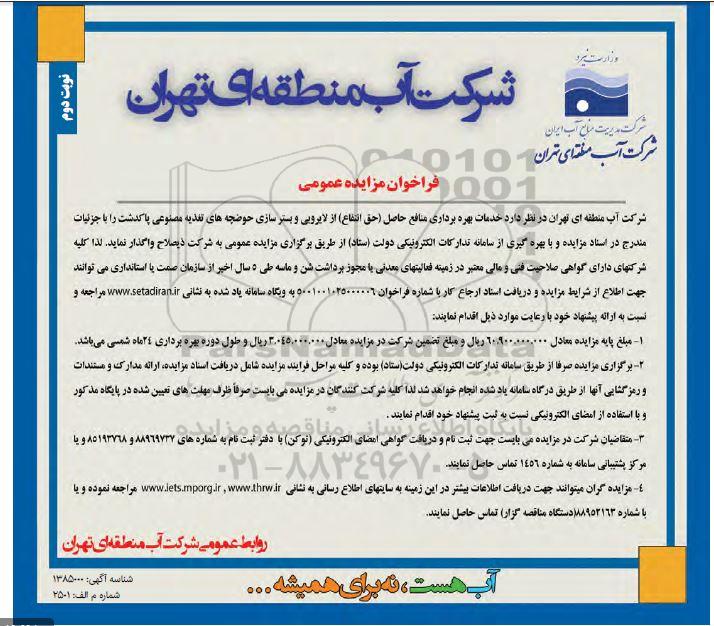 نوبت دوم
وزارت نیرو
شرکت مدیریت منابع آب ایران
شرکت آب منطقه‌ای تهران
شرکت آب منطقه‌ای تهران
فراخوان مزایده عمومی
شرکت آب منطقه ای تهران در نظر دارد خدمات بهره برداری منافع حاصل (حق انتفاع) از لایروبی و بستر سازی حوضچه های تغذیه مصنوعی پاکدشت را با جزئیات
مندرج در اسناد مزایده و با بهره گیری از سامانه تدارکات الکترونیکی دولت (ستاد) از طریق برگزاری مزایده عمومی به شرکت ذیصلاح واگذار نماید. لذا کلیه
شرکتهای دارای گواهی صلاحیت فنی و مالی معتبر در زمینه فعالیتهای معدنی یا مجوز برداشت شن و ماسه طی ۵ سال اخیر از سازمان صمت یا استانداری می توانند
جهت اطلاع از شرایط مزایده و دریافت اسناد ارجاع کار با شماره فراخوان ۵۰۰۱۰۰۱۰۲۵۰۰۰۰۰۶ به وبگاه سامانه یاد شده به نشانی www.setadiran.ir مراجعه و
نسبت به ارائه پیشنهاد خود با رعایت موارد ذیل اقدام نمایند:
۱- مبلغ پایه مزایده معادل ۶۰.۹۰۰.۰۰۰.۰۰۰ ریال و مبلغ تضمین شرکت در مزایده معادل ۳.۰۴۵.۰۰۰.۰۰۰ ریال و طول دوره بهره برداری ۲۴ماه شمسی می‌باشد.
۲- برگزاری مزایده صرفا از طریق سامانه تدارکات الکترونیکی دولت(ستاد) بوده و کلیه مراحل فرایند مزایده شامل دریافت اسناد مزایده، ارائه مدارک و مستندات
و رمزگشایی آنها از طریق درگاه سامانه یاد شده انجام خواهد شد لذا کلیه شرکت کنندگان در مزایده می بایست صرفاً ظرف مهلت های تعیین شده در پایگاه مذکور
و با استفاده از امضای الکترونیکی نسبت به ثبت پیشنهاد خود اقدام نمایند .
۳- متقاضیان شرکت در مزایده می بایست جهت ثبت نام و دریافت گواهی امضای الکترونیکی (توکن) با دفتر ثبت نام به شماره های ۸۸۹۶۹۷۳۷ و ۸۵۱۹۳۷۶۸ و یا
مرکز پشتیبانی سامانه به شماره ۱۴۵۶ تماس حاصل نمایند.
۴- مزایده گران میتوانند جهت دریافت اطلاعات بیشتر در این زمینه به سایتهای اطلاع رسانی به نشانی www.iets.mporg.ir , www.thrw.ir مراجعه نموده و یا
با شماره ۸۸۹۵۲۱۶۳(دستگاه مناقصه گزار) تماس حاصل نمایند.
روابط عمومی شرکت آب منطقه‌ای تهران
آب هست، نه برای همیشه ...
شناسه آگهی: ۱۳۸۵۰۰۰
شماره م الف: ۲۵۰۱
ParsNamadData
پایگاه اطلاع رسانی مناقصه و مزایده
۰۲۱-۸۸۳۴۹۶۷۰-۵